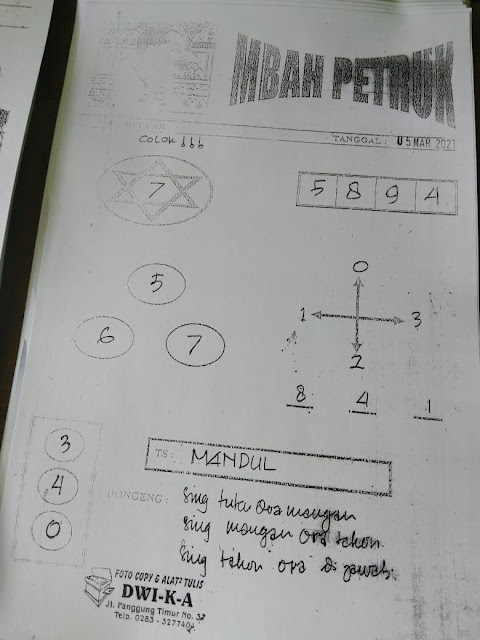 MBAH PETRUK
COLOK !!!
TANGGAL : 05 MAR 2021
7
5 8 9 4
5
6 7
0
1 3
2
8 4 1
3
4
0
TS : MANDUL
DONGENG : Sing tuku ora mangan
Sing mangan ora takon
Sing takon ora di jawab.
FOTO COPY & ALAT² TULIS
DWI-K-A
Jl. Panggung Timur No. 37
Telp. 0283 - 327740